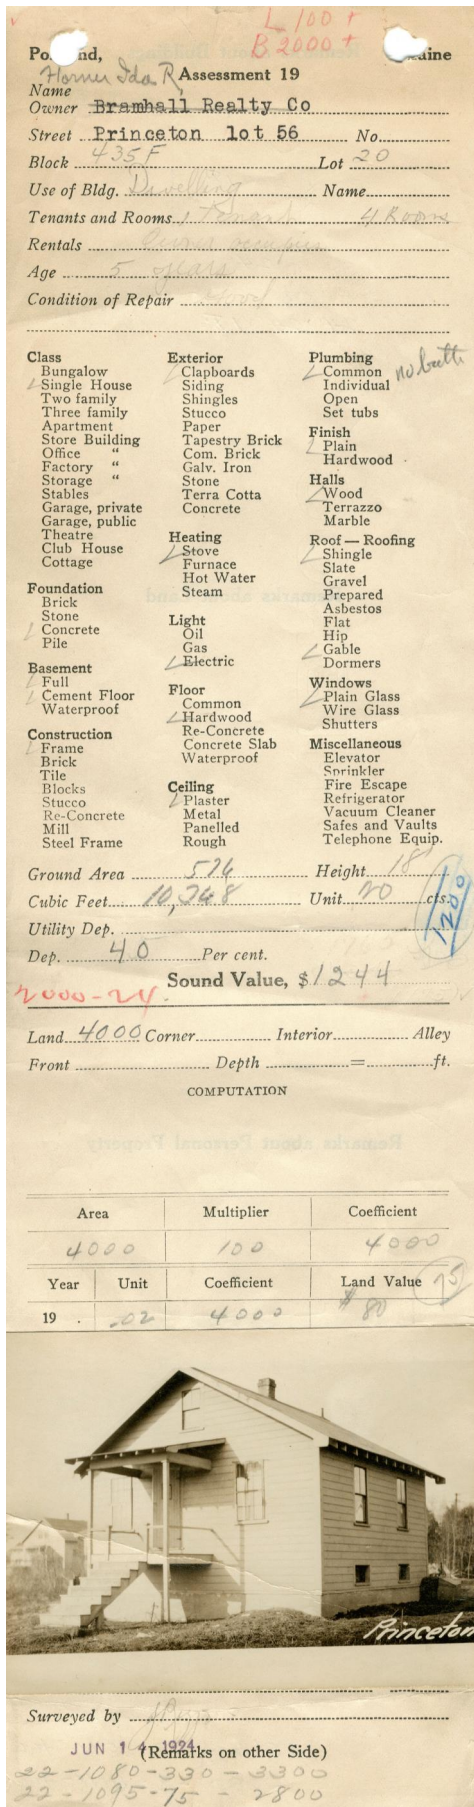 L 100 +
B 2000 +
Po nd, aine
Horner Ida R, Assessment 19
Name
Owner Bramhall Realty Co
Street Princeton lot 56 No.
Block 435 F Lot 20
Use of Bldg. Dwelling Name
Tenants and Rooms 1 Tenant 4 Room
Rentals Owner occupies
Age 5 years
Condition of Repair
Class
Bungalow
Single House
Two family
Three family
Apartment
Store Building
Office "
Factory "
Storage "
Stables
Garage, private
Garage, public
Theatre
Club House
Cottage
Foundation
Brick
Stone
Concrete
Pile
Basement
Full
Cement Floor
Waterproof
Construction
Frame
Brick
Tile
Blocks
Stucco
Re-Concrete
Mill
Steel Frame
Exterior
Clapboards
Siding
Shingles
Stucco
Paper
Tapestry Brick
Com. Brick
Galv. Iron
Stone
Terra Cotta
Concrete
Heating
Stove
Furnace
Hot Water
Steam
Light
Oil
Gas
Electric
Floor
Common
Hardwood
Re-Concrete
Concrete Slab
Waterproof
Ceiling
Plaster
Metal
Panelled
Rough
Plumbing
Common no bath
Individual
Open
Set tubs
Finish
Plain
Hardwood
Halls
Wood
Terrazzo
Marble
Roof — Roofing
Shingle
Slate
Gravel
Prepared
Asbestos
Flat
Hip
Gable
Dormers
Windows
Plain Glass
Wire Glass
Shutters
Miscellaneous
Elevator
Sprinkler
Fire Escape
Refrigerator
Vacuum Cleaner
Safes and Vaults
Telephone Equip.
Ground Area 576 Height 18
Cubic Feet 10,368 Unit 20 cts.
1200
Utility Dep.
Dep. 40 Per cent.
Sound Value, $1244
2000-24
Land 4000 Corner Interior Alley
Front Depth = ft.
COMPUTATION
Area Multiplier Coefficient
4000 100 4000
Year Unit Coefficient Land Value 75
19 . .02 4000 $80
Princeton
Surveyed by
JUN 14 1924 (Remarks on other Side)
22-1080-330-3300
22-1095-75-2800